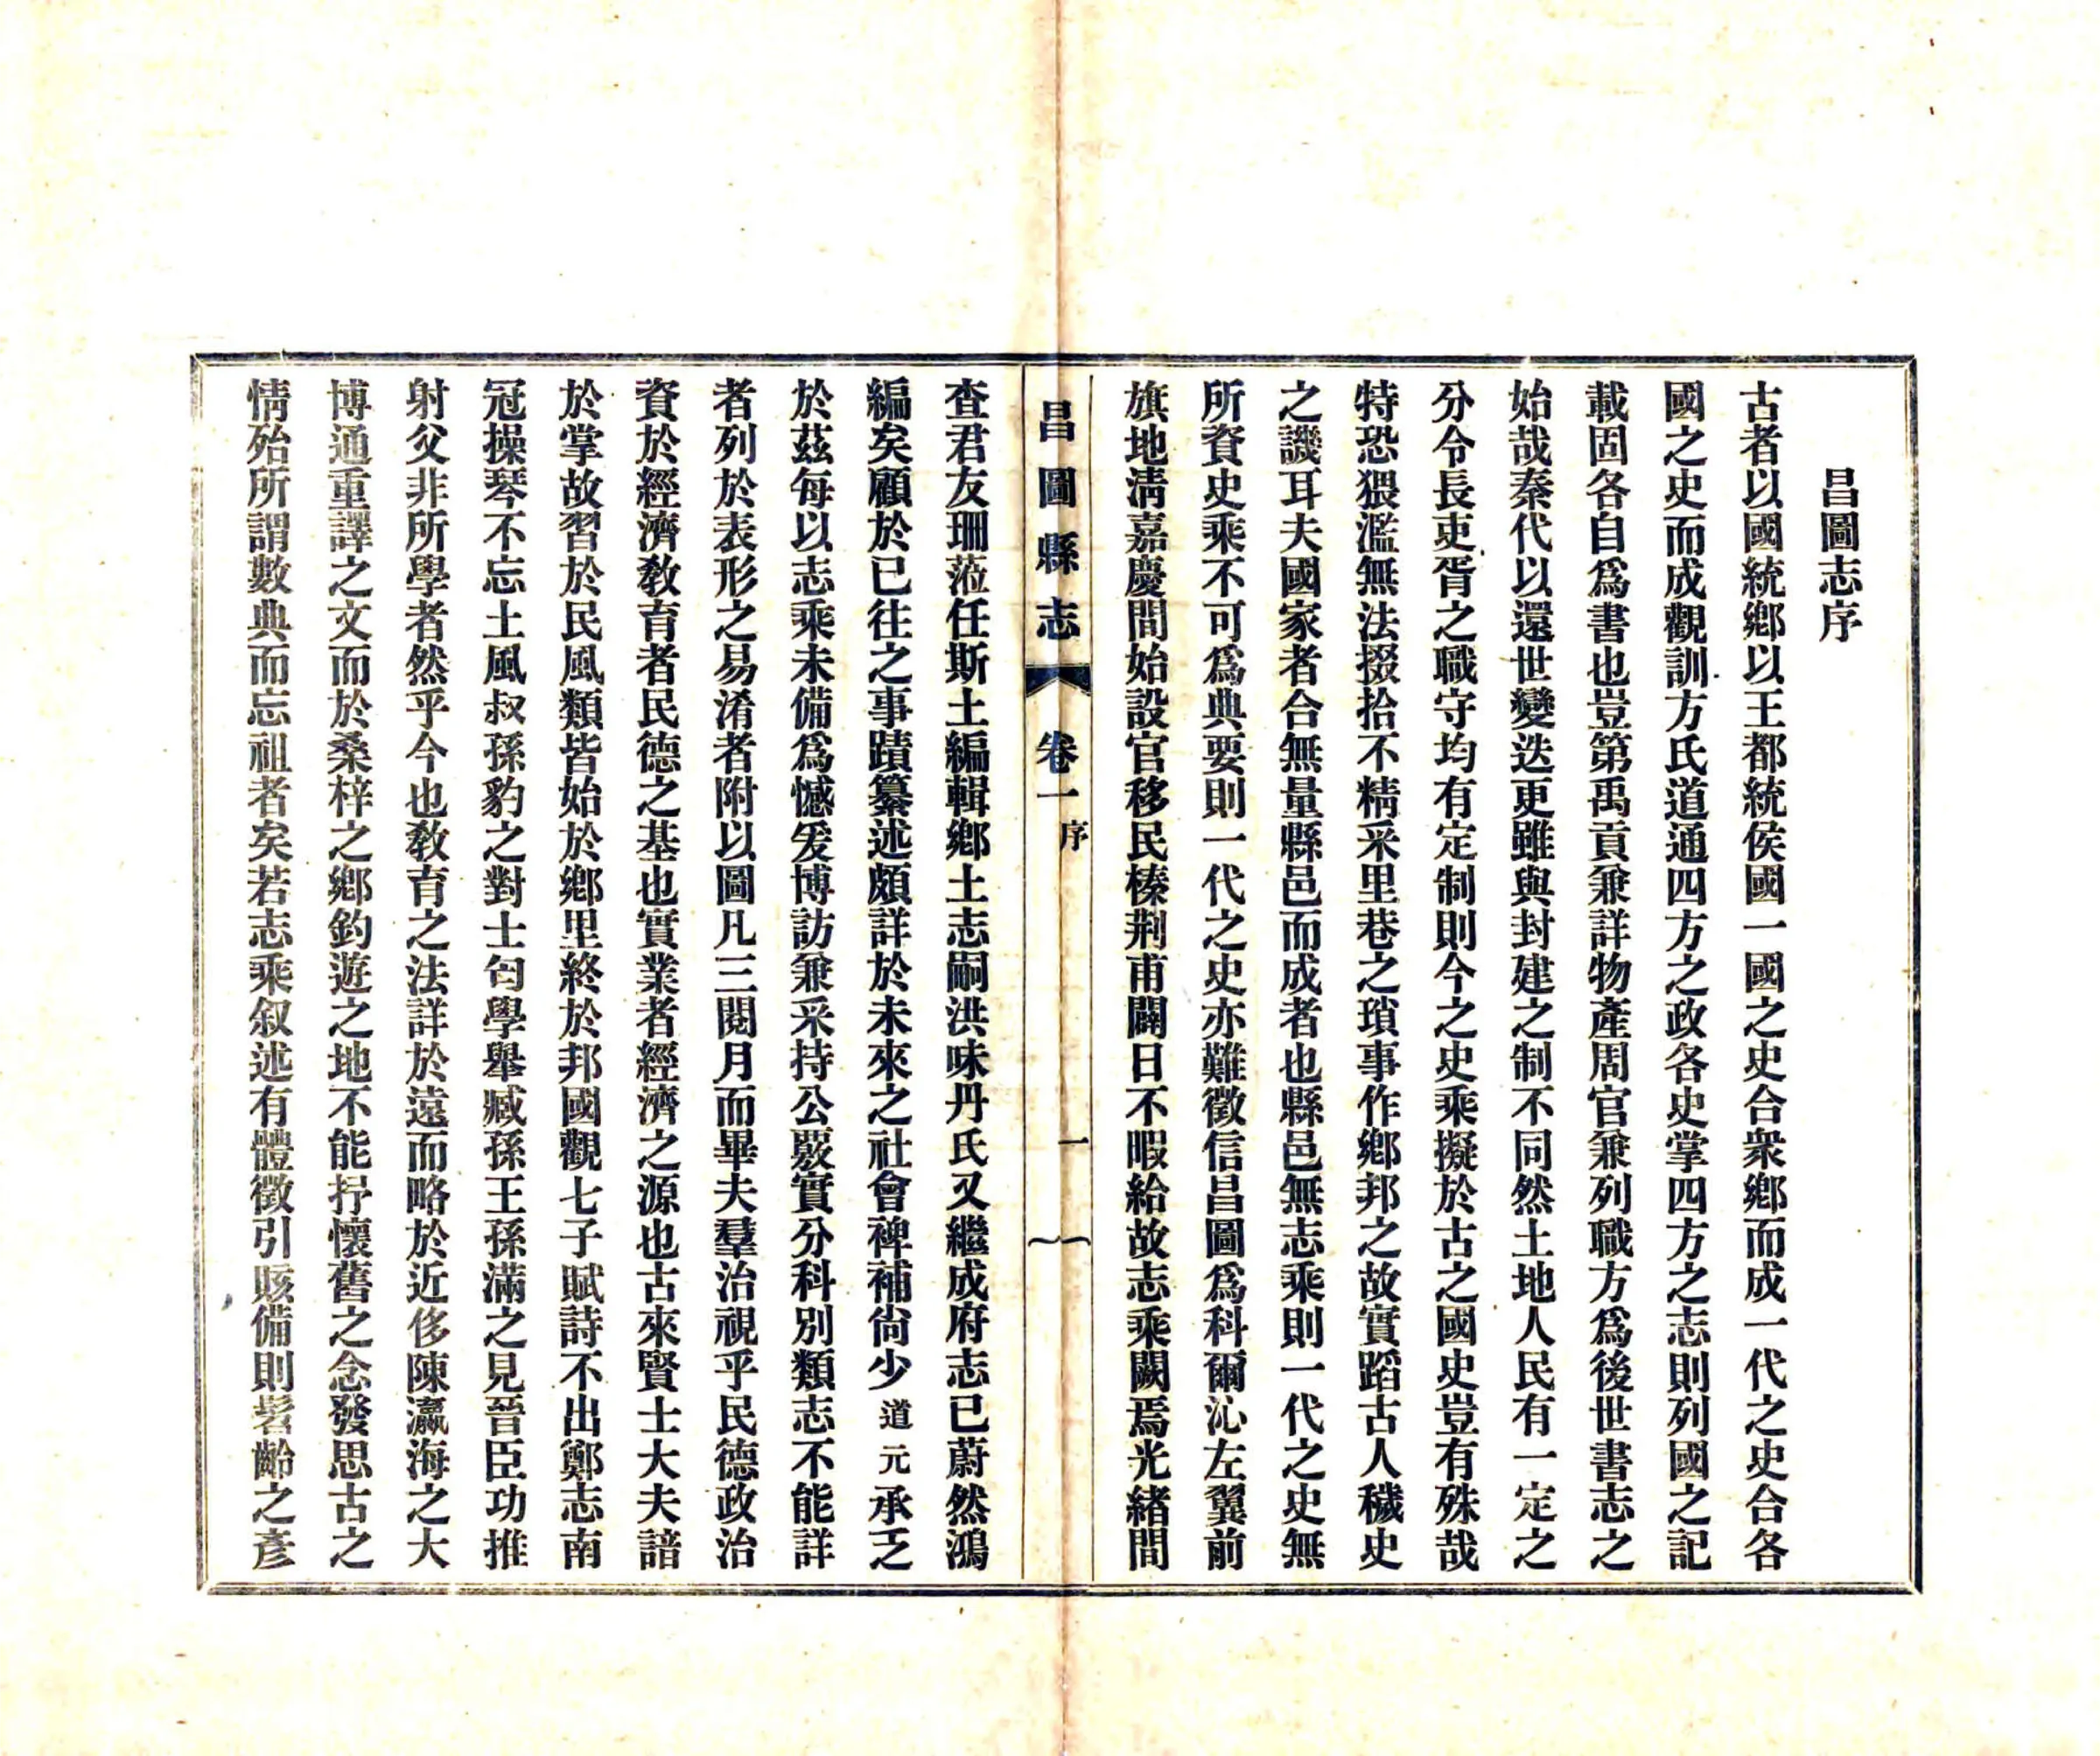 昌圖志序
古者以國統鄉以王都統侯國一國之史合衆鄉而成一代之史合各
國之史而成觀訓方氏道通四方之政各史掌四方之志則列國之記
載固各自爲書也豈第禹貢兼詳物產周官兼列職方爲後世書志之
始哉秦代以還世變迭更雖與封建之制不同然土地人民有一定之
分令長吏胥之職守均有定制則今之史乘擬於古之國史豈有殊哉
特恐猥濫無法掇拾不精采里巷之瑣事作鄉邦之故實蹈古人穢史
之譏耳夫國家者合無量縣邑而成者也縣邑無志乘則一代之史無
所資史乘不可爲典要則一代之史亦難徵信昌圖爲科爾沁左翼前
旗地淸嘉慶間始設官移民榛荆甫闢日不暇給故志乘闕焉光緒間
昌圖縣志 卷一 序 一
查君友珊蒞任斯土編輯鄉土志嗣洪味丹氏又繼成府志已蔚然鴻
編矣顧於已往之事蹟纂述頗詳於未來之社會裨補尙少道元承乏
於茲每以志乘未備爲憾爰博訪兼采持公覈實分科別類志不能詳
者列於表形之易淆者附以圖凡三閱月而畢夫羣治視乎民德政治
資於經濟教育者民德之基也實業者經濟之源也古來賢士大夫諳
於掌故習於民風類皆始於鄉里終於邦國觀七子賦詩不出鄭志南
冠操琴不忘土風叔孫豹之對士匄學舉臧孫王孫滿之見晉臣功推
射父非所學者然乎今也教育之法詳於遠而略於近侈陳瀛海之大
博通重譯之文而於桑梓之鄉釣遊之地不能抒懷舊之念發思古之
情殆所謂數典而忘祖者矣若志乘叙述有體徵引賅備則髫齡之彥